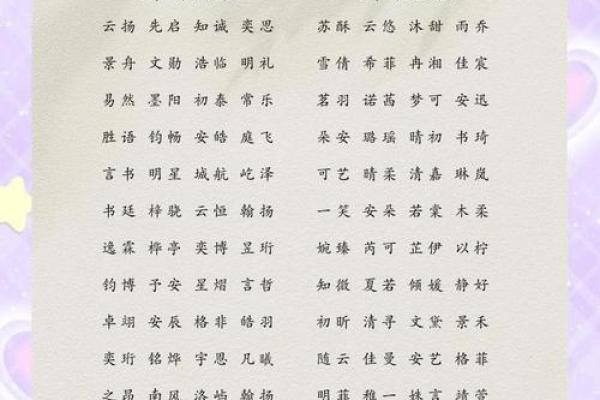 云扬 先启 知诚 奕思 苏酥 云悠 沐甜 雨乔
景舟 文勋 浩临 明礼 雪倩 希菲 冉湘 佳宸
易然 墨阳 初泰 常乐 茗羽 诺茜 梦可 安迅
胜语 钧畅 安皓 庭飞 朵安 璐瑶 晴初 书琦
言书 明星 城航 屹泽 可艺 晴柔 清嘉 琳岚
书廷 梓骁 云恒 翰扬 一笑 安朵 若棠 木柔
逸霖 桦亭 奕博 昱珩 婉臻 芮可 芷伊 以柠
钧博 予安 星熠 言哲 知微 夏若 倾媛 静好
卓翊 安辰 格非 皓羽 初昕 清寻 文黛 景禾
奕珩 铭烨 宇恩 凡曦 随云 佳曼 安艺 格菲
之昂 南风 洛屿 翰扬 明菲 稚一 姝言 靖萱